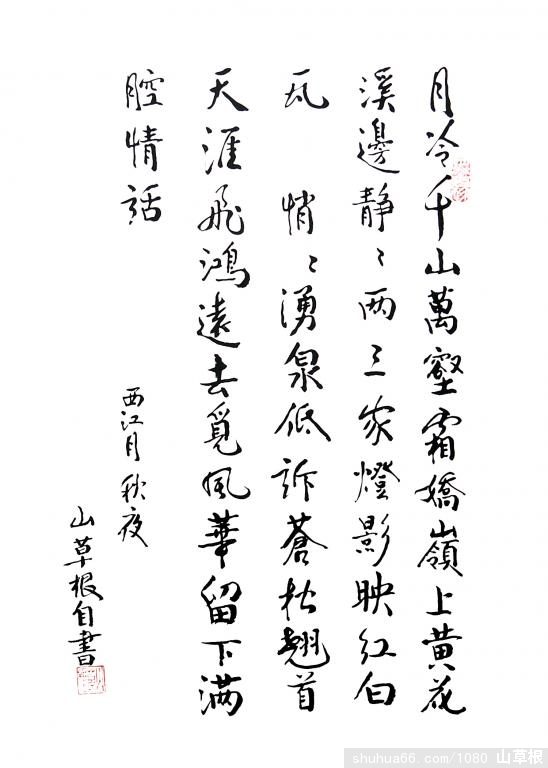 月冷千山萬壑霜嬌嶺上黃花
溪邊静〻两三家燈影映红白
瓦 悄〻湧泉低訴蒼松翹首
天涯飛鴻遠去覓風華留下满
腔情話
西江月 秋夜
山草根自書
shuhua66.com/1080 山草根